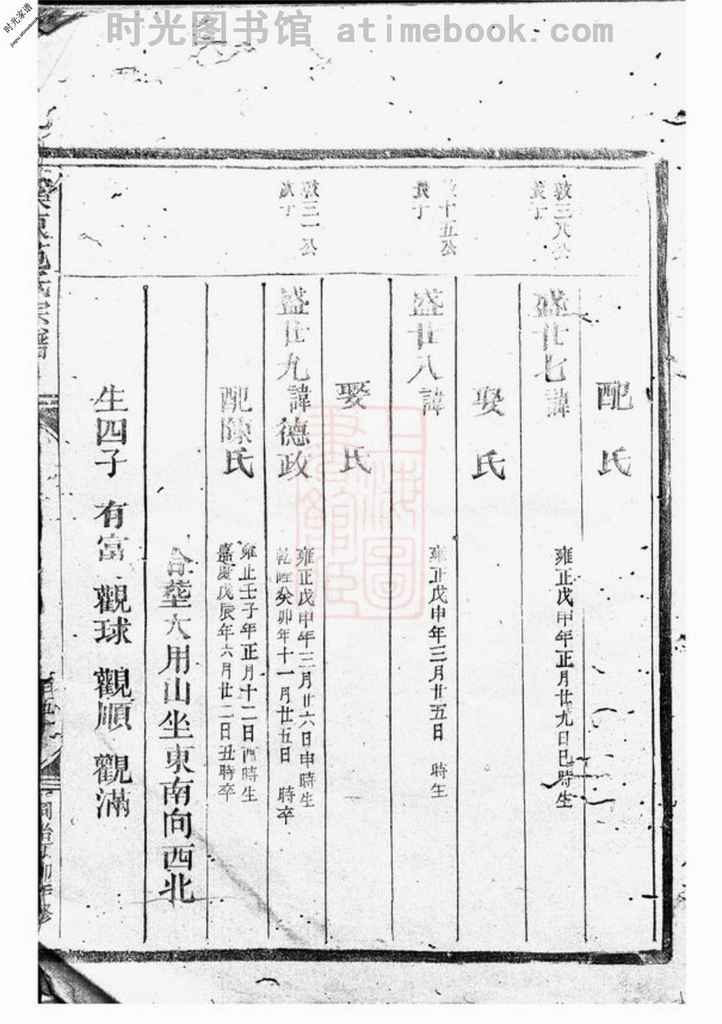 时光图书馆 atimebook.com
时光家谱
配 氏
敦三八公
盛廿七諱
雍正戊申年正月廿九日巳時生
娶 氏
十五公
盛廿八諱
雍正戊申年三月廿五日 時生
娶 氏
敦三一公
盛廿九諱德政
雍正戊申年三月廿六日申時生
乾隆癸卯年十一月廿五日 時卒
配陳氏
雍正壬子年正月十二日酉時生
嘉慶戊辰年六月廿二日丑時卒
合塟大用山坐東南向西北
生四子 有富 觀球 觀順 觀滿
氏宗譜
同治丁卯年修